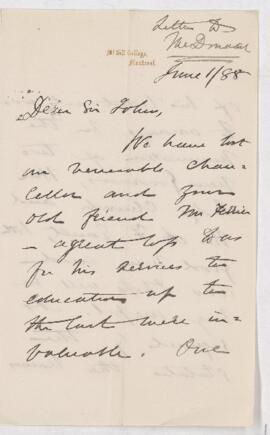 Letter to
McDonald
McGill College,
Montreal.
June 1/88
Dear Sir John,
We have lost
our venerable chan-
cellor and your
old friend Mr Ferrier
– a great loss to us
for his services to
education up to
the last were in-
valuable. One